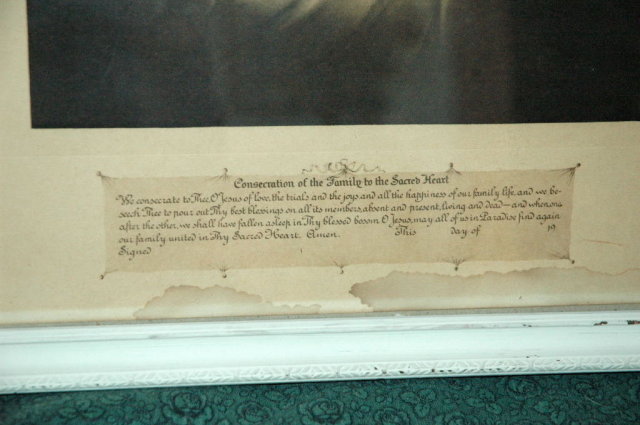 Consecration of the Family to the Sacred Heart
We consecrate to Thee, O Jesus of love, the trials and the joys and all the happiness of our family life, and we be-
seech Thee to pour out Thy best blessings on all its members, absent and present, living and dead — and when, one
after the other, we shall have fallen asleep in Thy blessed bosom, O Jesus, may all of us in Paradise find again
our family united in Thy Sacred Heart. Amen. This day of 19
Signed